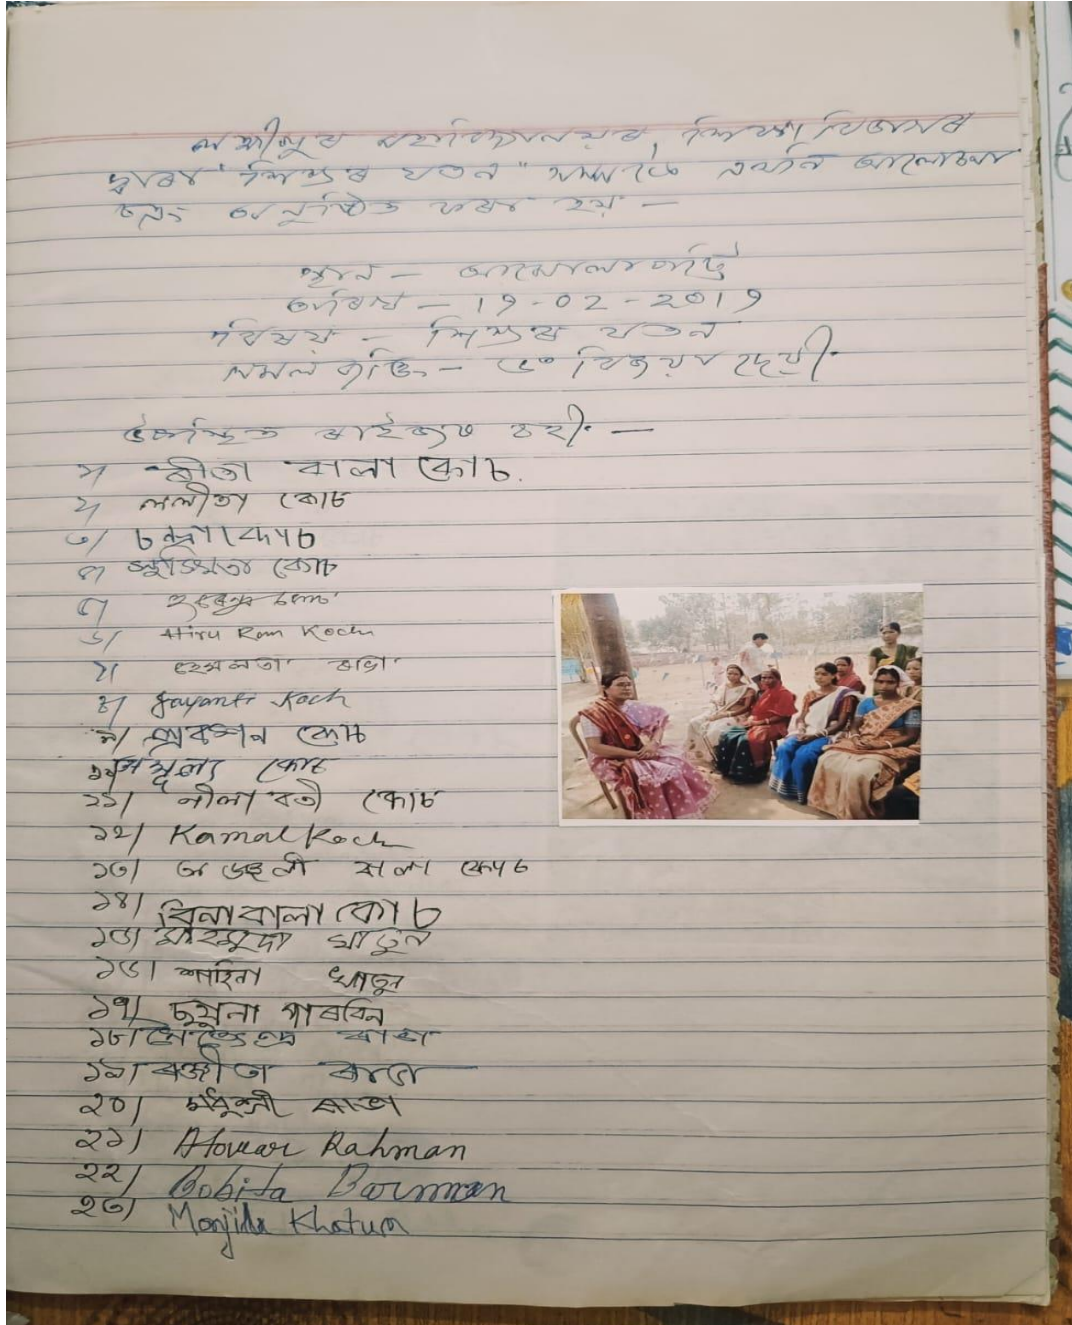 মহাবিদ্যালয়ৰ, শিক্ষা বিভাগৰ
দ্বাৰা "শিশুৰ যতন" এখনি আলোচনা
অনুষ্ঠিত কৰা হয় —
স্থান —
তাৰিখ — 17-02-2017
বিষয় — শিশুৰ যতন
সমল ব্যক্তি — ড° বিজয়া দেৱী
উপস্থিত ৰাইজৰ চহী —
১/ বালা কোচ
২/ ললীতা কোচ
৩/ চন্দ্ৰা কোচ
৪/ কোচ
৫/
৬/ Hiru Ram Koch
৭/ হেমলতা ৰাভা
৮/ Jayanti Koch
৯/ কোচ
১০/ কোচ
১১/ লীলাবতী কোচ
১২/ Kamal Koch
১৩/ বালা কোচ
১৪/ বিনাবালা কোচ
১৫/ মাহমুদা খাতুন
১৬/ শাহিনা খাতুন
১৭/ পাৰবিন
১৮/ ৰাভা
১৯/ ৰঞ্জীতা ৰাভা
২০/ মধুশ্ৰী ৰাভা
২১/ Atowar Rahman
২২/ Bobita Barman
২৩/ Monjida Khatun